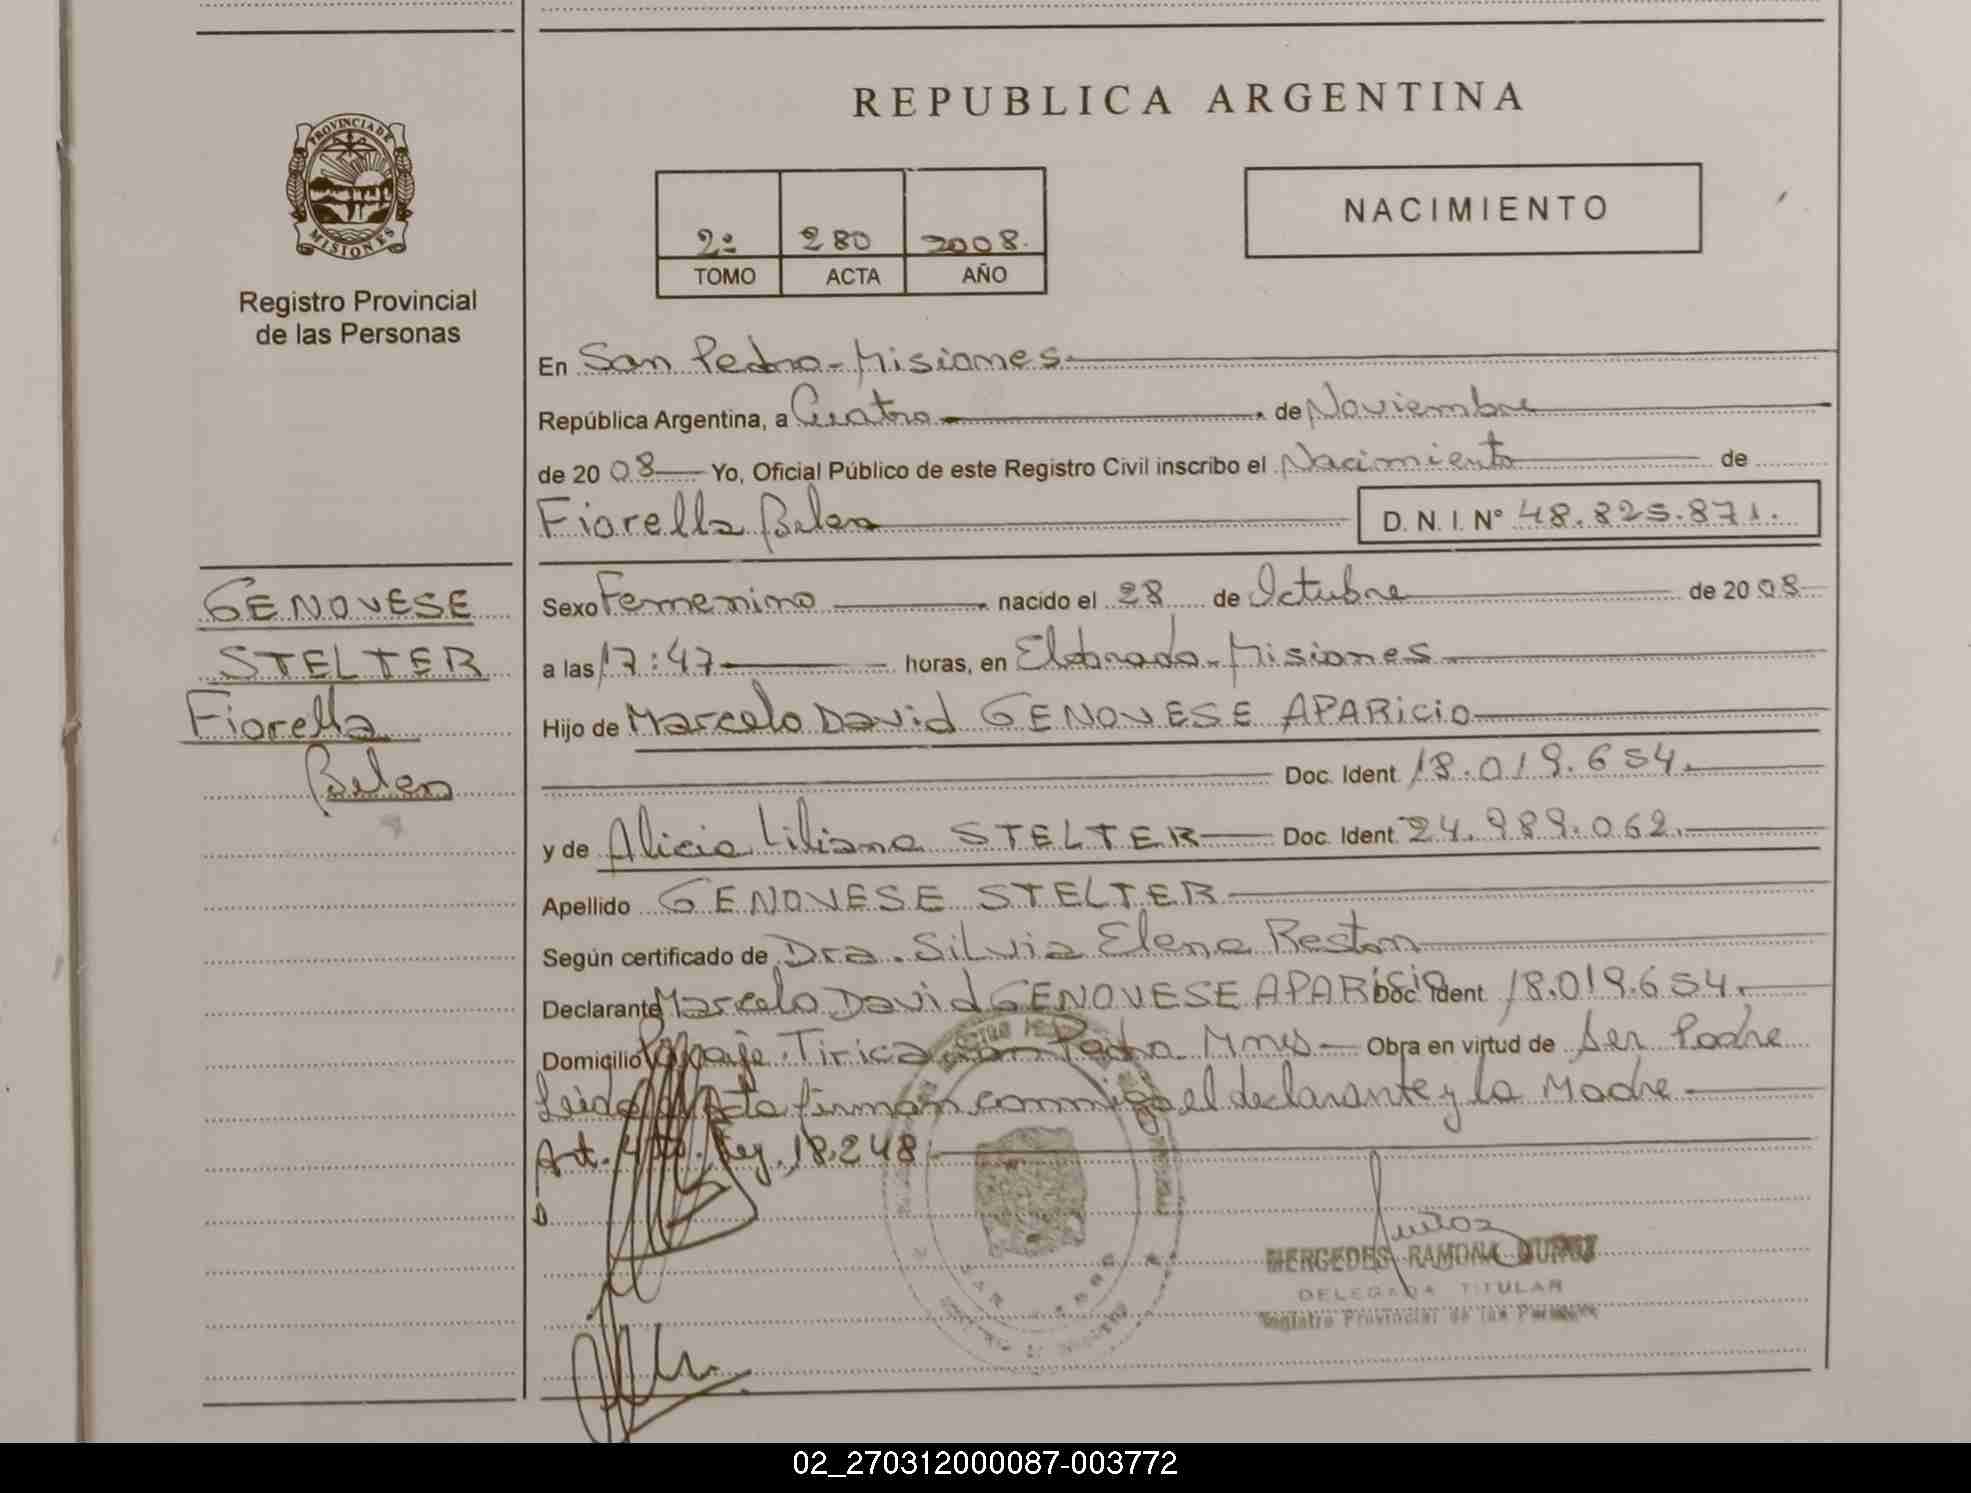 REPUBLICA ARGENTINA
PROVINCIA DE
MISIONES
Registro Provincial
de las Personas
NACIMIENTO
2º 280 2008.
TOMO ACTA AÑO
En San Pedro - Misiones
República Argentina, a Cuatro de Noviembre
de 20 08 Yo, Oficial Público de este Registro Civil inscribo el Nacimiento de
Fiorella Belen D. N. I. Nº 48.825.871.
GENOVESE
STELTER
Fiorella
Belen
Sexo Femenino nacido el 28 de Octubre de 20 08
a las 17:47 horas, en Eldorado - Misiones
Hijo de Marcelo David GENOVESE APARICIO
Doc. Ident. 18.019.654.
y de Alicia Liliana STELTER Doc. Ident. 24.989.062.
Apellido GENOVESE STELTER
Según certificado de Dra. Silvia Elena Reston
Declarante Marcelo David GENOVESE APARICIO Doc. Ident. 18.019.654.
Domicilio Paraje Tirica San Pedro Mnes Obra en virtud de Ser Padre
Leida Acta firman conmigo el declarante y la Madre
Art. Ley 18.248
MERCEDES RAMONA
DELEGADA TITULAR
Registro Provincial de las Personas
02_270312000087-003772